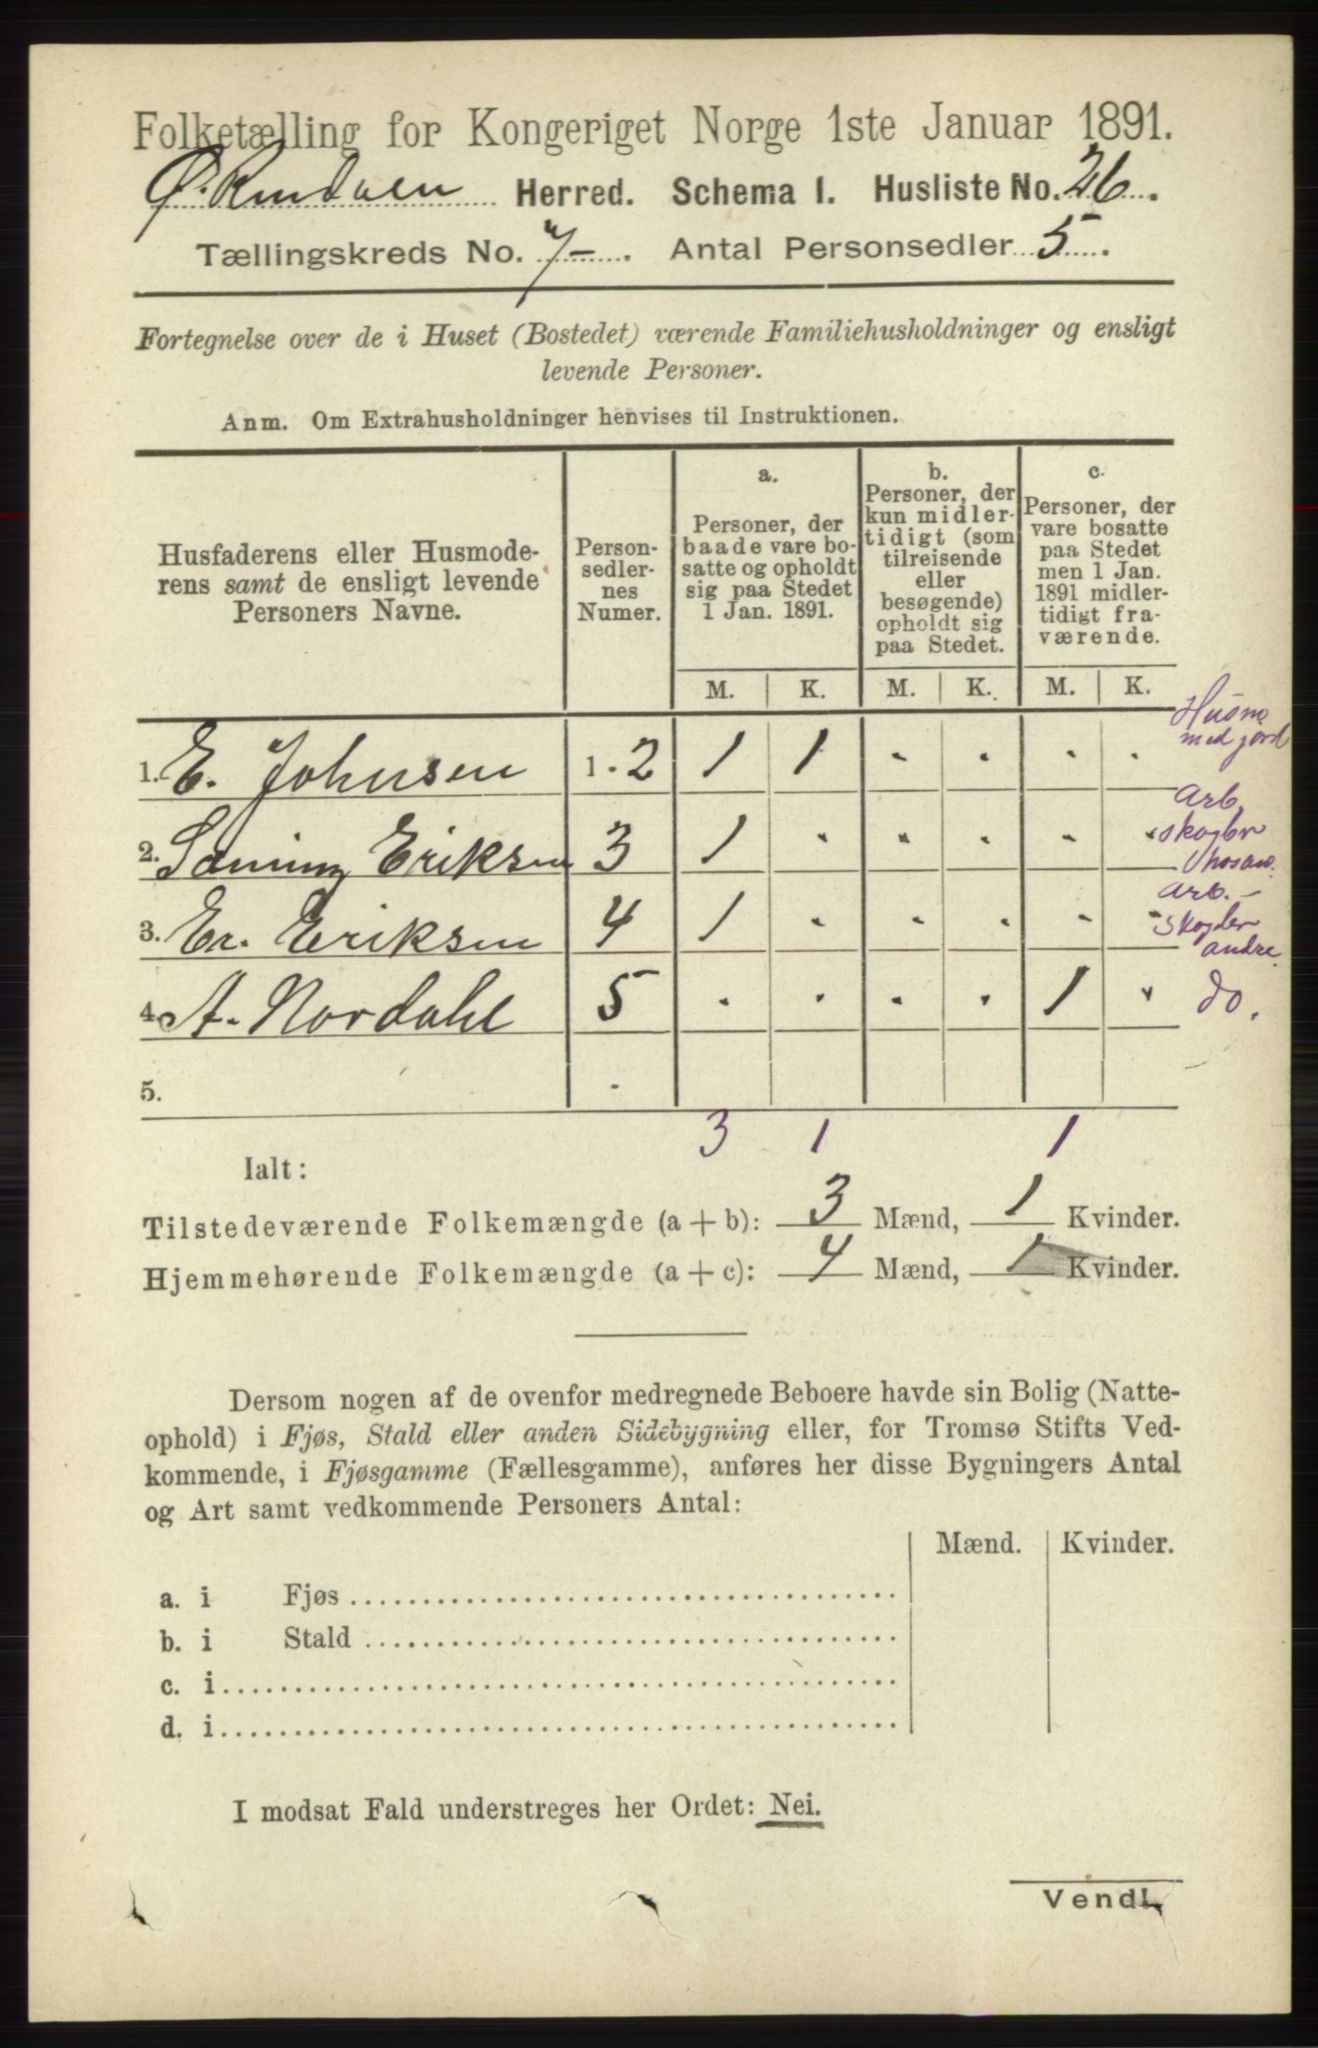 Folketælling for Kongeriget Norge 1ste Januar 1891.
Ø. Rendalen Herred. Schema I. Husliste No. 26.
Tællingskreds No. 7-. Antal Personsedler 5.
Fortegnelse over de i Huset (Bostedet) værende Familiehusholdninger og ensligt
levende Personer.
Anm. Om Extrahusholdninger henvises til Instruktionen.
Husfaderens eller Husmode-
rens samt de ensligt levende
Personers Navne.
Person-
sedler-
nes
Numer.
a.
Personer, der
baade vare bo-
satte og opholdt
sig paa Stedet
1 Jan. 1891.
b.
Personer, der
kun midler-
tidigt (som
tilreisende
eller
besøgende)
opholdt sig
paa Stedet.
c.
Personer, der
vare bosatte
paa Stedet
men 1 Jan.
1891 midler-
tidigt fra-
værende.
M. K. M. K. M. K.
1. E. Johnsen 1 - 2 1 1 - - - - Husm med jord
2. Sæming Eriksen 3 1 - - - - - Arb. skogbr
3. Er. Eriksen 4 1 - - - - - Arb. - skogbr andre
4. A. Nordahl 5 - - - - 1 - do.
5. -
3 1 1
Ialt:
Tilstedeværende Folkemængde (a + b): 3 Mænd, 1 Kvinder.
Hjemmehørende Folkemængde (a + c): 4 Mænd, 1 Kvinder.
Dersom nogen af de ovenfor medregnede Beboere havde sin Bolig (Natte-
ophold) i Fjøs, Stald eller anden Sidebygning eller, for Tromsø Stifts Ved-
kommende, i Fjøsgamme (Fællesgamme), anføres her disse Bygningers Antal
og Art samt vedkommende Personers Antal:
Mænd. Kvinder.
a. i Fjøs
b. i Stald
c. i
d. i
I modsat Fald understreges her Ordet: Nei.
Vendl.